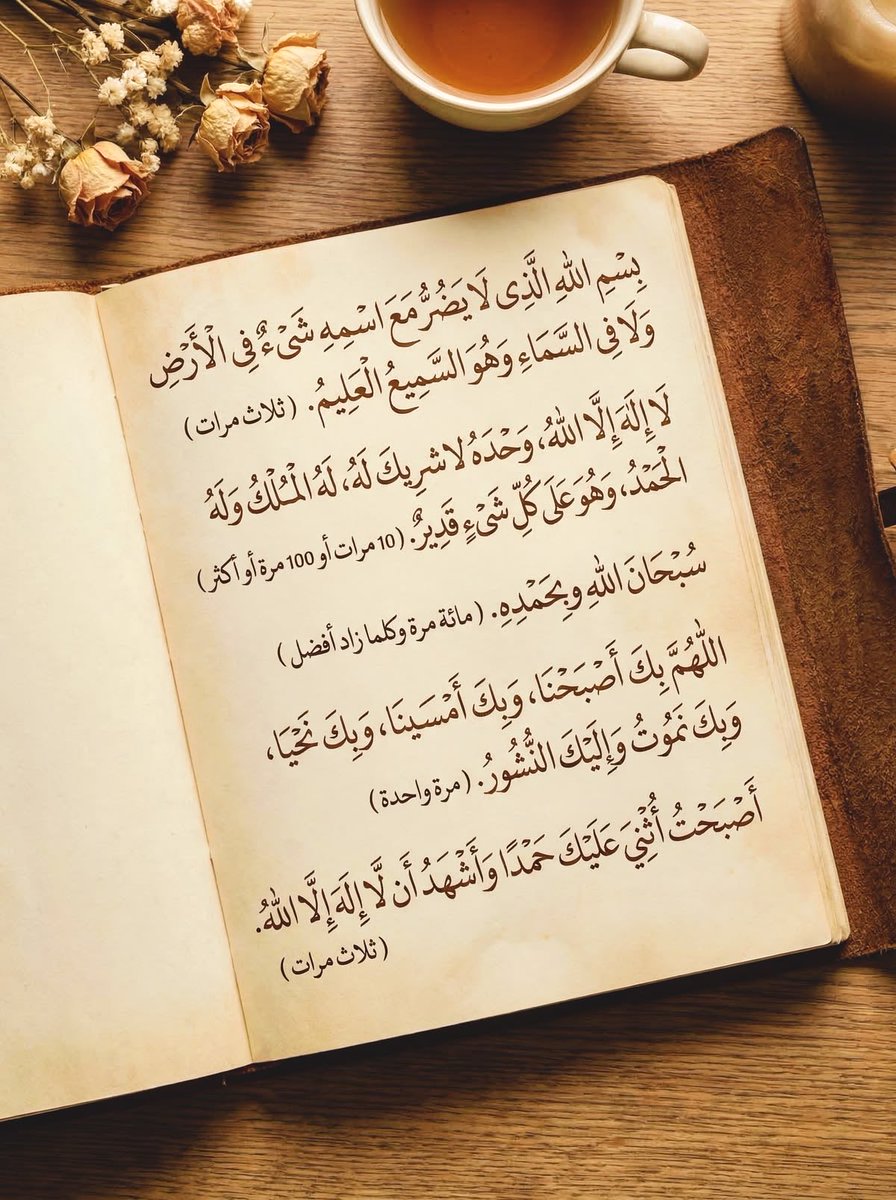 بِسْمِ اللهِ الَّذِى لَا يَضُرُّ مَعَ اسْمِهِ شَىْءٌ فِى الْأَرْضِ
وَلَا فِى السَّمَاءِ وَهُوَ السَّمِيعُ الْعَلِيمُ. (ثلاث مرات)
لَا إِلٰهَ إِلَّا اللهُ، وَحْدَهُ لا شرِيكَ لَهُ، لَهُ الْمُلْكُ وَلَهُ
الْحَمْدُ، وَهُوَ عَلَى كُلِّ شَىْءٍ قَدِيرٌ. (10 مرات أو 100 مرة أو أكثر)
سُبْحَانَ اللهِ وبِحَمْدِهِ. (مائة مرة وكلما زاد أفضل)
اللّٰهُمَّ بِكَ أَصْبَحْنَا، وَبِكَ أَمْسَينَا، وَبِكَ نَحْيَا،
وَبِكَ نَمُوتُ وَإِلَيْكَ النُّشُورُ. (مرة واحدة)
أَصْبَحْتُ أُثْنِيَ عَلَيْكَ حَمْدًا وَأَشْهَدُ أَن لَّا إِلَهَ إِلَّا اللهُ.
(ثلاث مرات)